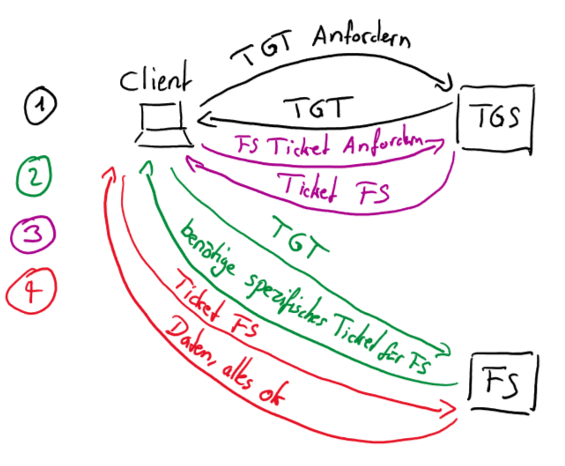 TGT Anfordern
Client
1
TGT
TGS
FS Ticket Anfordern
2
Ticket FS
3
TGT
benötige spezifisches Ticket für FS
4
Ticket FS
Daten, alles ok
FS